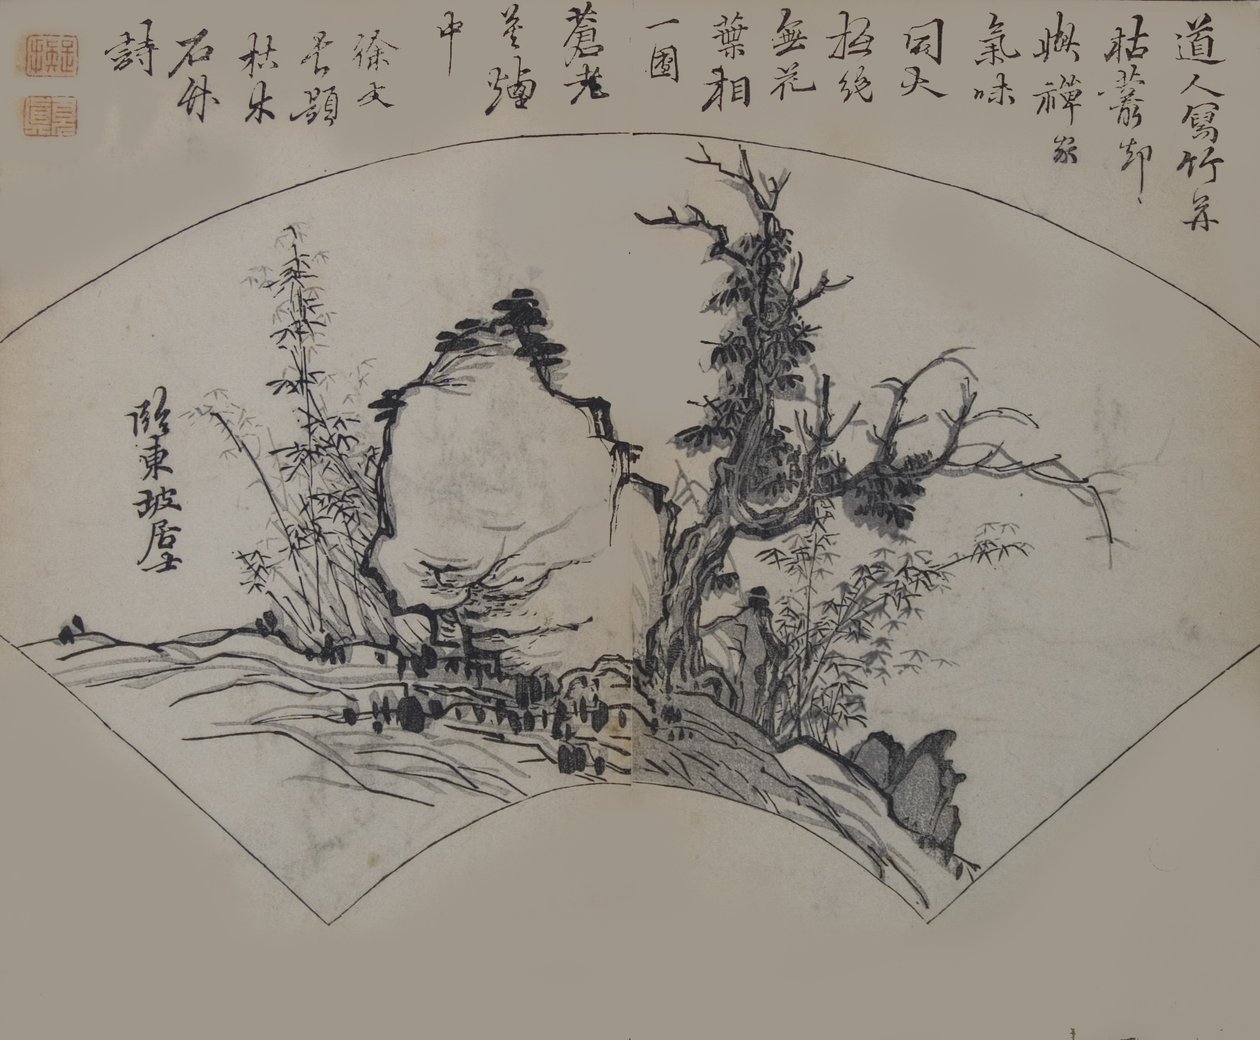 道人寫竹并
枯叢却
與禪家
氣味
同大
抵絕
無花
葉相
一團
蒼老
莫煙
中
徐文
長題
枯木
石竹
詩
臨東坡居士